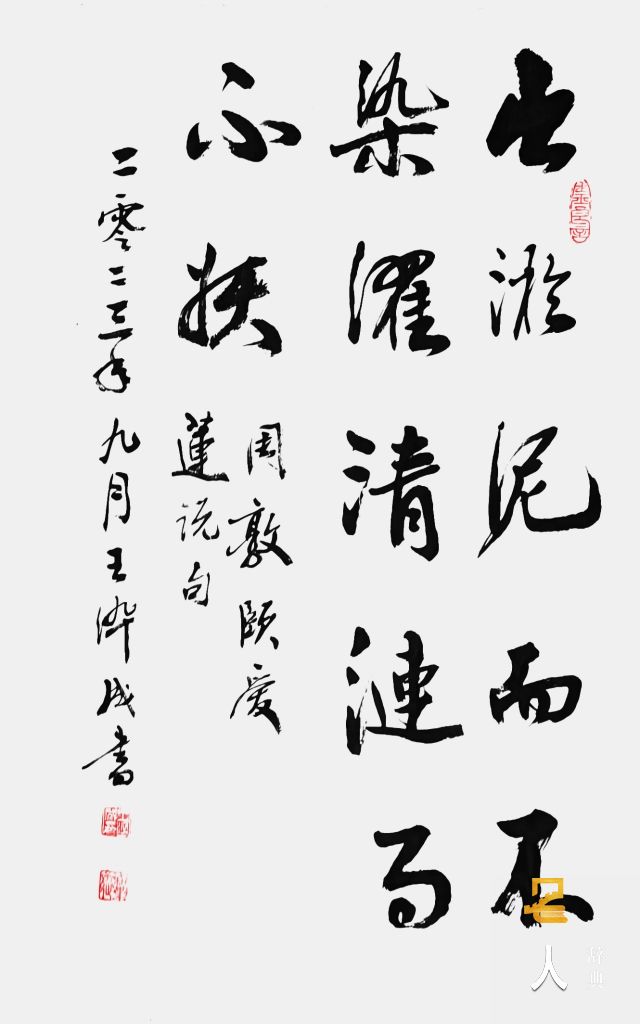 出淤泥而不
染濯清漣而
不妖
周敦頤爱
蓮说句
二零二三年九月王成書
名人
辞典